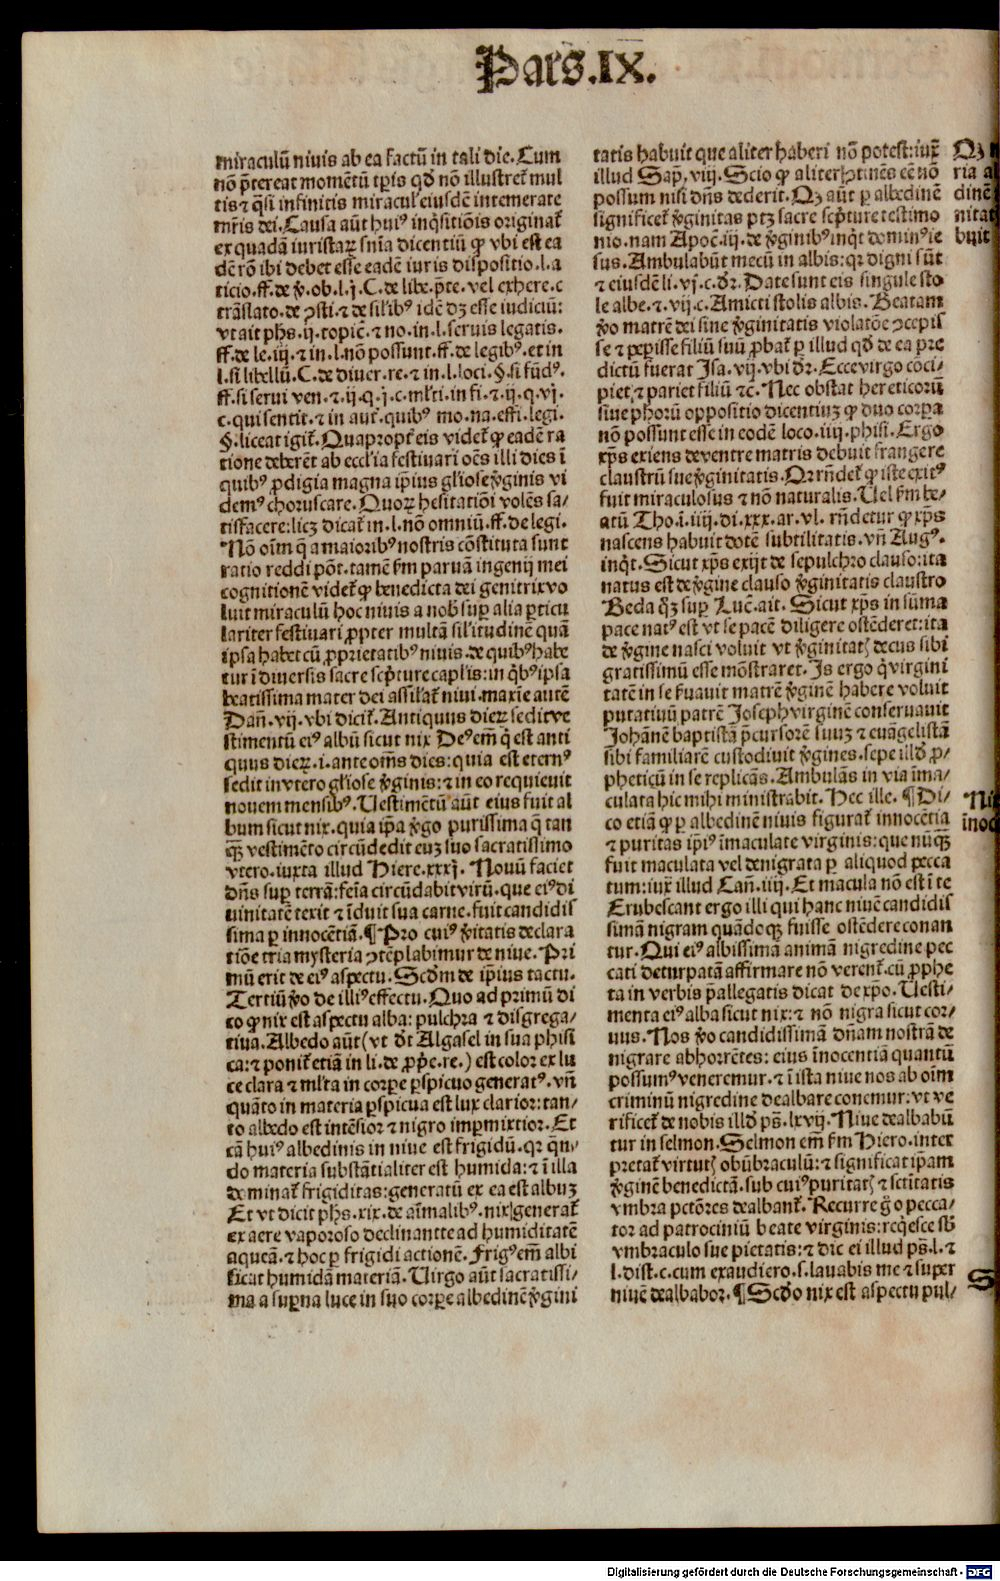 Pars.IX.
miraculū nivis ab ea factū in tali die. Cum
nō p̄tereat momētū tp̄is qd̄ nō illustret᷑ mul
tis ⁊ q̄si infinitis miracul' eiusdē intemerate
mr̄is dei. Causa aūt huiꝰ inq̄sitiōis originat᷑
ex quadā iuristaꝝ sn̄ia dicentiū ꝙ vbi est ea
dē rō ibi debet esse eadē iuris dispositio. l. a
ticio. ff. de v̓. ob. l. j. C. de libe. p̄te. vel exhere. c
trāslato. de ꝯsti. ⁊ de sil'ibꝰ idē dꝫ esse iudiciū:
vt ait ph̄s. ij. topic̄. ⁊ no. in. l. seruis legatis.
ff. de le. iij. ⁊ in. l. nō possunt. ff. de legibꝰ. et in
l. si libellū. C. de diuer. re. ⁊ in. l. loci. §. si fūdꝰ.
ff. si serui ven. ⁊ ij. q. j. c. ml'ti. in fi. ⁊ ij. q. vj.
c. qui sentit. ⁊ in aut᷑. quibꝰ mo. na. effi. legi.
§. liceat igit᷑. Quapropt᷑ eis videt᷑ ꝙ eadē ra
tione deberēt ab eccl'ia festiuari oēs illi dies ī
quibꝰ ꝓdigia magna ip̄ius gl'iose v̓ginis vi
demꝰ choruscare. Quoꝝ hesitatiōi volēs sa-
tisfacere: licꝫ dicat᷑ in. l. nō omniū. ff. de legi.
Nō oīm q̄ a maioribꝰ nostris cōstituta sunt
ratio reddi pōt. tamē ẜm paruā ingenij mei
cognitionē videt᷑ ꝙ benedicta dei genitrix vo
luit miraculū hoc niuis a nob̄ suꝑ alia ꝑticu
lariter festiuari ꝓpter multā sil'itudinē quā
ipsa habet cū ꝓprietatibꝰ niuis. de quibꝰ habe
tur ī diuersis sacre sc̄pture capl'is: in q̄bꝰ ipsa
beatissima mater dei assil'at᷑ niui. maxīe autē
Dan̄. vij. vbi dicit᷑. Antiquus dieꝝ sedit ve
stimentū eiꝰ albū sicut nix Deꝰ em̄ q̄ est anti
quus dieꝝ. i. ante om̄s dies: quia est eternꝰ
sedit in vtero gl'iose v̓ginis: ⁊ in eo requieuit
nouem mensibꝰ. Uestimētū aūt eius fuit al
bum sicut nix. quia ip̄a v̓go purissima q̄ tan
qꝫ̄ vestimēto circūdedit eūꝫ suo sacratissimo
vtero. iuxta illud Hiere. xxxj. Nouū faciet
dn̄s suꝑ terrā: feīa circūdabit virū. que eiꝰ di
uinitatē texit ⁊ īduit sua carne. fuit candidis
sima ꝑ innocētiā. ¶ Pro cuiꝰ v̓itatis declara
tiōe tria mysteria ꝯtēplabimur de niue. Pri
mū erit de eiꝰ aspectu. Scd̄m de ip̄ius tactu.
Tertiū v̓o de illiꝰ effectu. Quo ad primū di
co ꝙ nix est aspectu alba: pulchra ⁊ disgrega-
tiua. Albedo aūt (vt dt̄ Algasel in sua phisi
ca: ⁊ ponit᷑ etiā in li. de ꝓp̄. re.) est color ex lu
ce clara ⁊ ml'ta in corꝑe ꝑspicuo generatꝰ. vn̄
quāto in materia ꝑspicua est lux clarior: tan-
to albedo est intēsior ⁊ nigro imꝑmixtior. Et
cā huiꝰ albedinis in niue est frigidū. qꝛ qn̄-
do materia substātialiter est humida: ⁊ ī illa
dominat᷑ frigiditas: generatū ex ea est albuꝫ
Et vt dicit ph̄s. xix. de aīmalibꝰ. nix generat᷑
ex aere vaporoso declinante ad humiditatē
aqueā. ⁊ hoc ꝑ frigidi actionē. Frigꝰ em̄ albi
ficat humidā materiā. Uirgo aūt sacratissi-
ma a suꝑna luce in suo corꝑe albedinē v̓gini
tatis habuit que aliter haberi nō potest: iux̄
illud Sap̄. viij. Scio ꝙ aliter ꝯtinēs eē nō
possum nisi dn̄s dederit. Qꝫ aūt ꝑ albedinē
significet᷑ v̓ginitas ptꝫ sacre sc̄pture testimo
nio. nam Apoc̄. iij. de v̓ginibꝰ inq̄t dominꝰ ie
sus. Ambulabūt mecū in albis: qꝛ digni sūt
⁊ eiusdē li. vj. c. dr̄. Date sunt eis singule sto
le albe. ⁊. vij. c. Amicti stolis albis. Beatam
v̓o matrē dei sine v̓ginitatis violatōe ꝯcepis
se ⁊ peperisse filiū suū ꝓbat᷑ ꝑ illud qd̄ de ea pre
dictū fuerat Isa. vij. vbi dr̄. Ecce virgo cōci-
piet ⁊ pariet filiū ⁊c. Nec obstat hereticorū
siue phorū oppositio dicentiuꝫ ꝙ duo corꝑa
nō possunt esse in eodē loco. iiij. phisi. Ergo
xp̄s exiens de ventre matris debuit frangere
claustrū sue v̓ginitatis. Qꝛ rn̄det᷑ ꝙ iste exitꝰ
fuit miraculosus ⁊ nō naturalis. Uel ẜm be-
atū Tho. ī. iiij. di. xxx. ar. vl. rn̄detur ꝙ xp̄s
nascens habuit dotē subtilitatis. vn̄ Augꝰ.
inq̄t. Sicut xp̄s exijt de sepulchro clauso: ita
natus est de v̓gine clauso v̓ginitatis claustro
Beda qꝫ̄ suꝑ Luc̄. ait. Sicut xp̄s in sūma
pace natꝰ est vt se pacē diligere ostēderet: ita
de v̓gine nasci voluit vt v̓ginitatꝭ decus sibi
gratissimū esse mōstraret. Is ergo q̄ virgini
tatē in se ẜuauit matrē v̓ginē habere voluit
putatiuū patrē Joseph virginē conseruauit
Johānē baptistā p̄cursorē suuꝫ ⁊ euāgelistā
sibi familiarē custodiuit v̓gines. sepe illd̄ ꝓ-
pheticū in se replicās. Ambulās in via īma-
culata hic mihi ministrabit. Hec ille. ¶ Di-
co etiā ꝙ ꝑ albedinē niuis figurat᷑ innocētia
⁊ puritas ip̄iꝰ īmaculate virginis: que nūqꝫ̄
fuit maculata vel denigrata ꝑ aliquod pecca
tum: iux̄ illud Can̄. iiij. Et macula nō est ī te
Erubescant ergo illi qui hanc niuē candidis
simā nigram quādoqꝫ fuisse ostēdere conan
tur. Qui eiꝰ albissimā animā nigredine pec
cati deturpatā affirmare nō verent᷑. cū ꝓphe
ta in verbis p̄allegatis dicat de xp̄o. Uesti-
menta eiꝰ alba sicut nix: ⁊ nō nigra sicut cor-
uus. Nos v̓o candidissimā dn̄am nostrā de
nigrare abhorrētes: eius īnocentiā quantū
possumꝰ veneremur. ⁊ ī ista niue nos ab oīm
criminū nigredine dealbare conemur: vt ve
rificet᷑ de nobis illd̄ ps̄. lxvij. Niue dealbabū
tur in selmon. Selmon em̄ ẜm Hiero. inter
pretat᷑ virtutꝭ obūbraculū: ⁊ significat ip̄am
v̓ginē benedictā. sub cuiꝰ puritatꝭ ⁊ sc̄titatis
vmbra pctōres dealbant᷑. Recurre g̊o pecca-
tor ad patrociniū beate virginis: req̄esce sb̄
vmbraculo sue pietatis: ⁊ dic ei illud ps̄. l. ⁊
l. dist. c. cum exaudiero. s. lauabis me ⁊ super
niuē dealbabor. ¶ Scd̄o nix est aspectu pul-
Qꝫ
ria
dinē
nitat
buit
Ni
īnoc
S
Digitalisierung gefördert durch die Deutsche Forschungsgemeinschaft - DFG